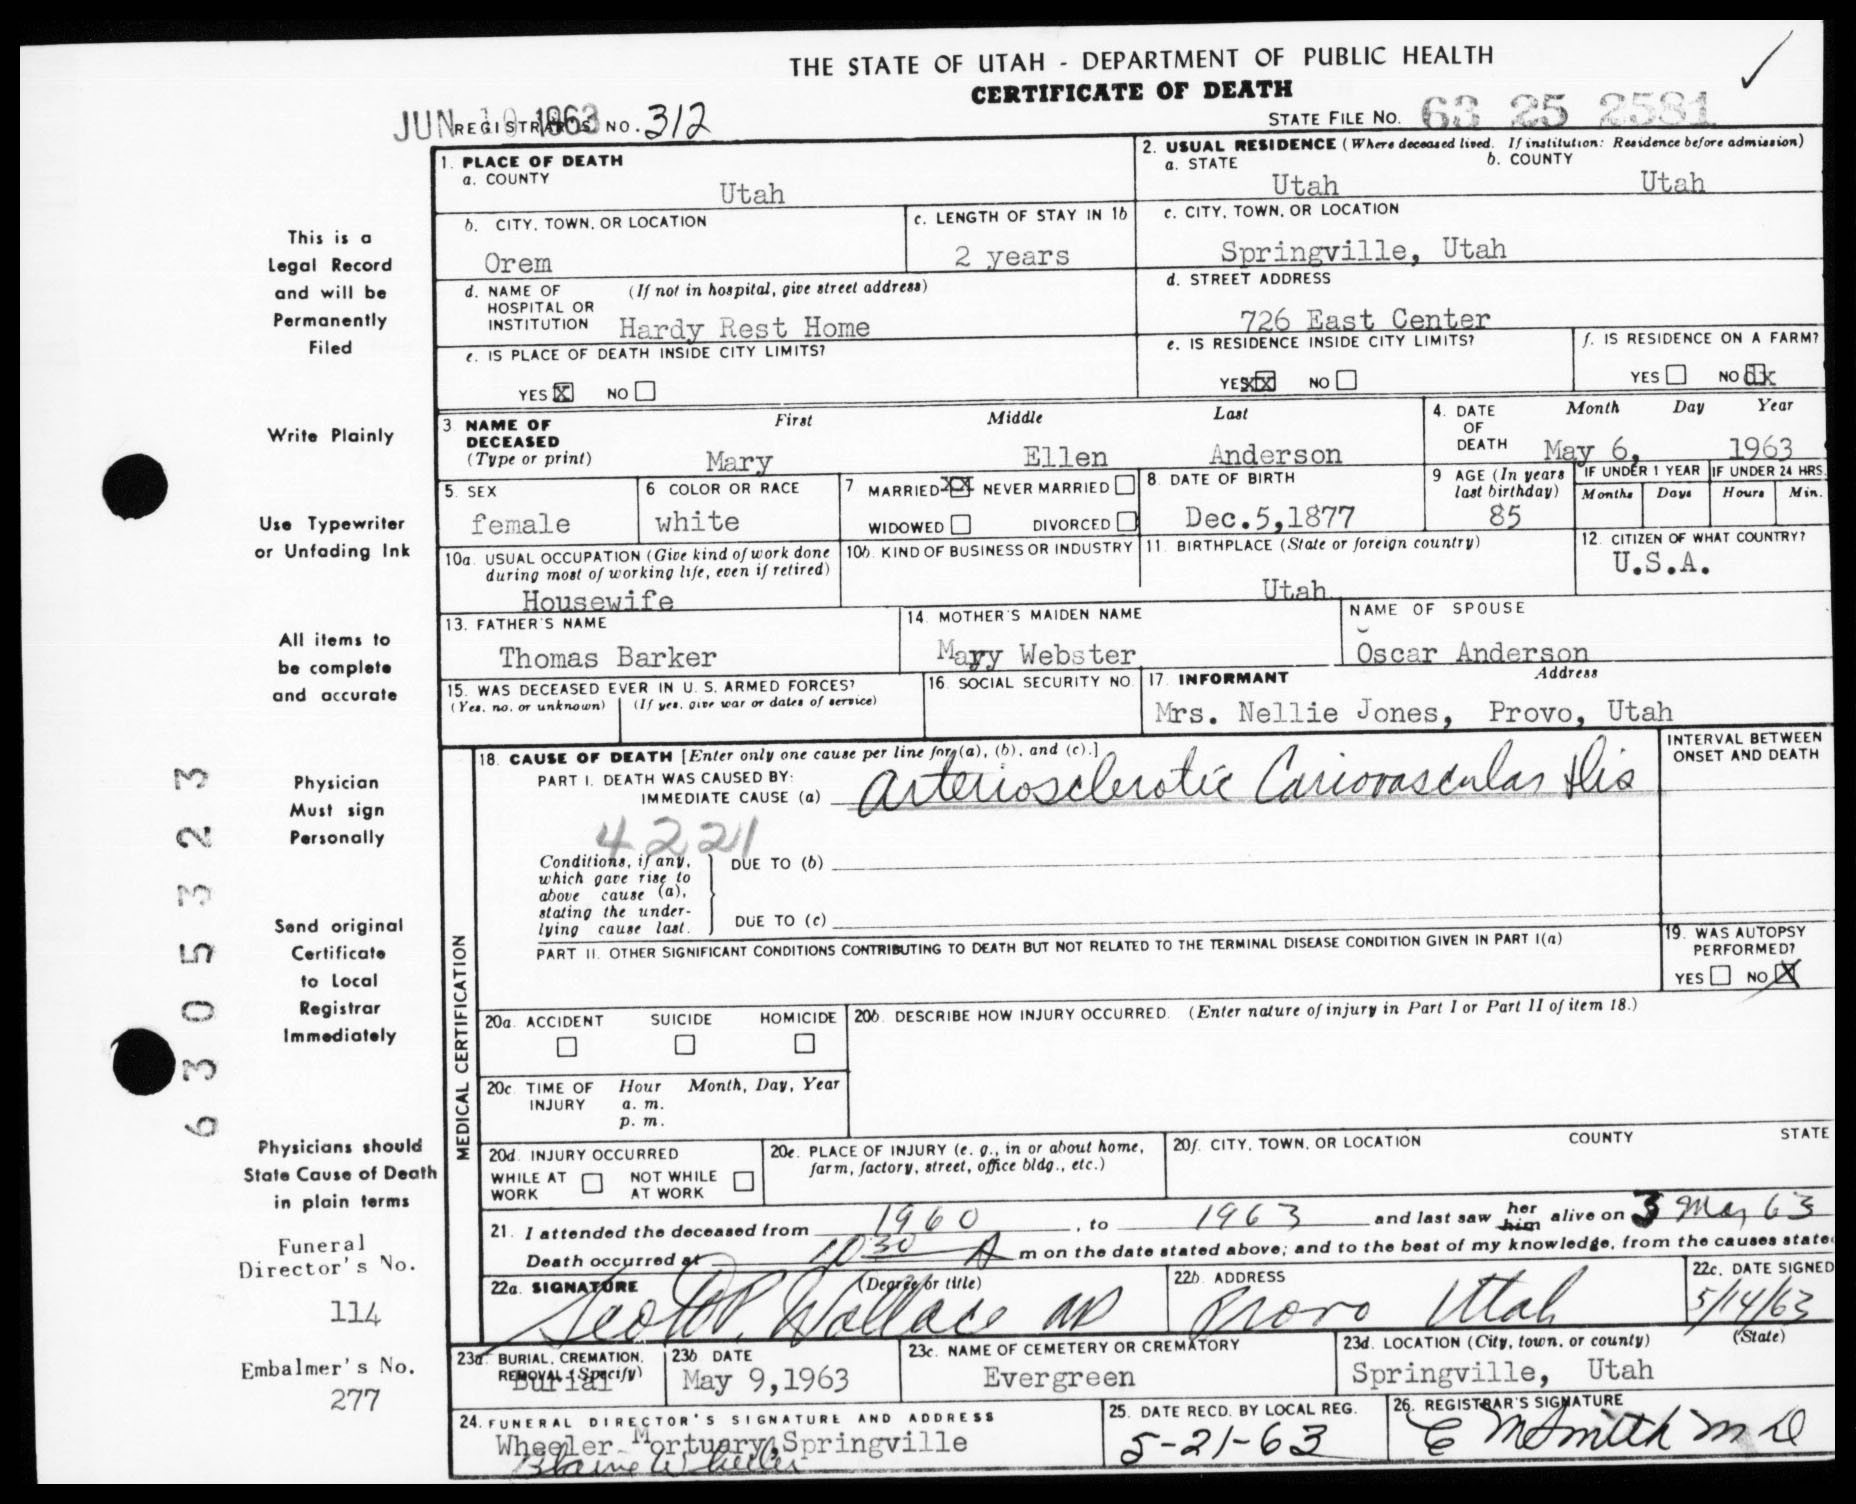 THE STATE OF UTAH - DEPARTMENT OF PUBLIC HEALTH
CERTIFICATE OF DEATH
JUN 10 1963 REGISTRAR'S NO. 312
STATE FILE NO. 63 25 2581
1. PLACE OF DEATH
a. COUNTY
Utah
2. USUAL RESIDENCE (Where deceased lived. If institution: Residence before admission)
a. STATE b. COUNTY
Utah Utah
b. CITY, TOWN, OR LOCATION
Orem
c. LENGTH OF STAY IN 1b
2 years
c. CITY, TOWN, OR LOCATION
Springville, Utah
d. NAME OF (If not in hospital, give street address)
HOSPITAL OR
INSTITUTION Hardy Rest Home
d. STREET ADDRESS
726 East Center
e. IS PLACE OF DEATH INSIDE CITY LIMITS?
YES X NO
e. IS RESIDENCE INSIDE CITY LIMITS?
YES XX NO
f. IS RESIDENCE ON A FARM?
YES NO dx
3. NAME OF
DECEASED
(Type or print)
First Middle Last
Mary Ellen Anderson
4. DATE
OF
DEATH
Month Day Year
May 6, 1963
5. SEX
female
6 COLOR OR RACE
white
7 MARRIED XX NEVER MARRIED
WIDOWED DIVORCED
8. DATE OF BIRTH
Dec.5,1877
9 AGE (In years
last birthday)
85
IF UNDER 1 YEAR IF UNDER 24 HRS.
Months Days Hours Min.
10a. USUAL OCCUPATION (Give kind of work done
during most of working life, even if retired)
Housewife
10b. KIND OF BUSINESS OR INDUSTRY
11. BIRTHPLACE (State or foreign country)
Utah
12. CITIZEN OF WHAT COUNTRY?
U.S.A.
13. FATHER'S NAME
Thomas Barker
14. MOTHER'S MAIDEN NAME
Mary Webster
NAME OF SPOUSE
Oscar Anderson
15. WAS DECEASED EVER IN U. S. ARMED FORCES?
(Yes, no, or unknown) (If yes, give war or dates of service)
16. SOCIAL SECURITY NO.
17. INFORMANT Address
Mrs. Nellie Jones, Provo, Utah
MEDICAL CERTIFICATION
18. CAUSE OF DEATH [Enter only one cause per line for (a), (b), and (c).]
PART I. DEATH WAS CAUSED BY:
IMMEDIATE CAUSE (a) Arteriosclerotic Cariovascular Dis
INTERVAL BETWEEN
ONSET AND DEATH
4221
Conditions, if any,
which gave rise to
above cause (a),
stating the under-
lying cause last.
DUE TO (b)
DUE TO (c)
PART II. OTHER SIGNIFICANT CONDITIONS CONTRIBUTING TO DEATH BUT NOT RELATED TO THE TERMINAL DISEASE CONDITION GIVEN IN PART I(a)
19. WAS AUTOPSY
PERFORMED?
YES NO X
20a. ACCIDENT SUICIDE HOMICIDE
20b. DESCRIBE HOW INJURY OCCURRED. (Enter nature of injury in Part I or Part II of item 18.)
20c. TIME OF Hour Month, Day, Year
INJURY a. m.
p. m.
20d. INJURY OCCURRED
WHILE AT NOT WHILE
WORK AT WORK
20e. PLACE OF INJURY (e. g., in or about home,
farm, factory, street, office bldg., etc.)
20f. CITY, TOWN, OR LOCATION COUNTY STATE
21. I attended the deceased from 1960, to 1963 and last saw her him alive on 3 May 63
Death occurred at 1030 A m on the date stated above; and to the best of my knowledge, from the causes state
22a. SIGNATURE (Degree or title)
Scott P. Wallace MD
22b. ADDRESS
Provo Utah
22c. DATE SIGNED
5/14/63
23a. BURIAL, CREMATION,
REMOVAL (Specify)
Burial
23b DATE
May 9,1963
23c. NAME OF CEMETERY OR CREMATORY
Evergreen
23d. LOCATION (City, town, or county) (State)
Springville, Utah
24. FUNERAL DIRECTOR'S SIGNATURE AND ADDRESS
Wheeler Mortuary, Springville
Blaine Wheeler
25. DATE RECD. BY LOCAL REG.
5-21-63
26. REGISTRAR'S SIGNATURE
E McSmith MD
This is a
Legal Record
and will be
Permanently
Filed
Write Plainly
Use Typewriter
or Unfading Ink
All items to
be complete
and accurate
Physician
Must sign
Personally
Send original
Certificate
to Local
Registrar
Immediately
Physicians should
State Cause of Death
in plain terms
Funeral
Director's No.
114
Embalmer's No.
277
63053323